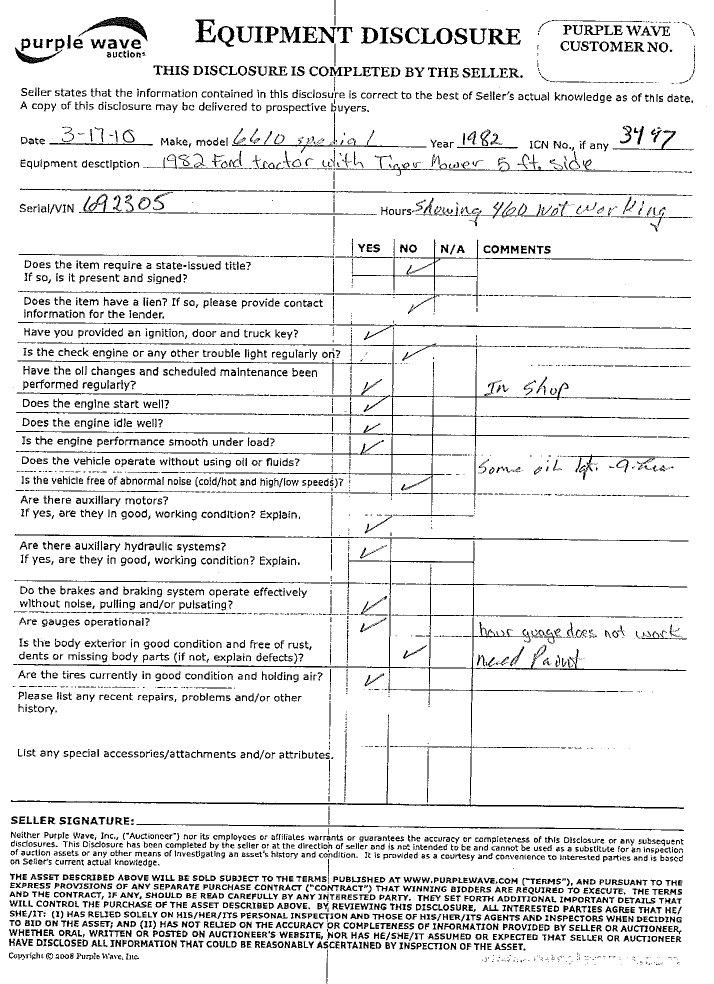 purple wave
auctions
EQUIPMENT DISCLOSURE
PURPLE WAVE
CUSTOMER NO.
THIS DISCLOSURE IS COMPLETED BY THE SELLER.
Seller states that the information contained in this disclosure is correct to the best of Seller's actual knowledge as of this date.
A copy of this disclosure may be delivered to prospective buyers.
Date 3-17-10 Make, model 6610 special Year 1982 ICN No., if any 3497
Equipment description 1982 Ford tractor with Tiger Mower 5 ft. side
Serial/VIN 692305 Hours Showing 460 not working
YES NO N/A COMMENTS
Does the item require a state-issued title?
If so, is it present and signed?
Does the item have a lien? If so, please provide contact
information for the lender.
Have you provided an ignition, door and truck key?
Is the check engine or any other trouble light regularly on?
Have the oil changes and scheduled maintenance been
performed regularly? In shop
Does the engine start well?
Does the engine idle well?
Is the engine performance smooth under load?
Does the vehicle operate without using oil or fluids? Some oil
Is the vehicle free of abnormal noise (cold/hot and high/low speeds)?
Are there auxiliary motors?
If yes, are they in good, working condition? Explain.
Are there auxiliary hydraulic systems?
If yes, are they in good, working condition? Explain.
Do the brakes and braking system operate effectively
without noise, pulling and/or pulsating?
Are gauges operational? hour guage does not work
Is the body exterior in good condition and free of rust,
dents or missing body parts (if not, explain defects)? need Paint
Are the tires currently in good condition and holding air?
Please list any recent repairs, problems and/or other
history.
List any special accessories/attachments and/or attributes.
SELLER SIGNATURE:
Neither Purple Wave, Inc., ("Auctioneer") nor its employees or affiliates warrants or guarantees the accuracy or completeness of this Disclosure or any subsequent
disclosures. This Disclosure has been completed by the seller or at the direction of seller and is not intended to be and cannot be used as a substitute for an inspection
of auction assets or any other means of investigating an asset's history and condition. It is provided as a courtesy and convenience to interested parties and is based
on Seller's current actual knowledge.
THE ASSET DESCRIBED ABOVE WILL BE SOLD SUBJECT TO THE TERMS PUBLISHED AT WWW.PURPLEWAVE.COM ("TERMS"), AND PURSUANT TO THE
EXPRESS PROVISIONS OF ANY SEPARATE PURCHASE CONTRACT ("CONTRACT") THAT WINNING BIDDERS ARE REQUIRED TO EXECUTE. THE TERMS
AND THE CONTRACT, IF ANY, SHOULD BE READ CAREFULLY BY ANY INTERESTED PARTY. THEY SET FORTH ADDITIONAL IMPORTANT DETAILS THAT
WILL CONTROL THE PURCHASE OF THE ASSET DESCRIBED ABOVE. BY REVIEWING THIS DISCLOSURE, ALL INTERESTED PARTIES AGREE THAT HE/
SHE/IT: (I) HAS RELIED SOLELY ON HIS/HER/ITS PERSONAL INSPECTION AND THOSE OF HIS/HER/ITS AGENTS AND INSPECTORS WHEN DECIDING
TO BID ON THE ASSET; AND (II) HAS NOT RELIED ON THE ACCURACY OR COMPLETENESS OF INFORMATION PROVIDED BY SELLER OR AUCTIONEER,
WHETHER ORAL, WRITTEN OR POSTED ON AUCTIONEER'S WEBSITE, NOR HAS HE/SHE/IT ASSUMED OR EXPECTED THAT SELLER OR AUCTIONEER
HAVE DISCLOSED ALL INFORMATION THAT COULD BE REASONABLY ASCERTAINED BY INSPECTION OF THE ASSET.
Copyright © 2008 Purple Wave, Inc.